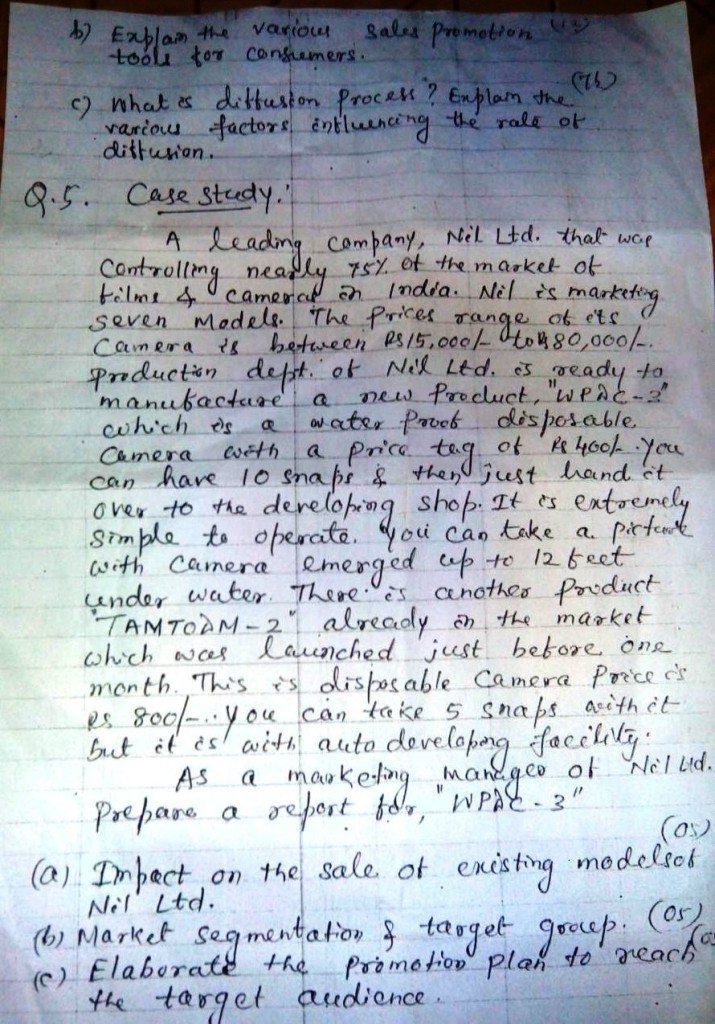 b) Explain the various sales promotion
tools for consumers.
(7½)
c) What is diffusion process? Explain the
various factors influencing the rate of
diffusion.
Q.5. Case study:
A leading company, Nil Ltd. that was
controlling nearly 75% of the market of
films & cameras in India. Nil is marketing
seven models. The prices range of its
Camera is between Rs 15,000/- to Rs 80,000/-.
production dept. of Nil Ltd. is ready to
manufacture a new product, "WPDC-3"
which is a water proof disposable
camera with a price tag of Rs 400/-. You
can have 10 snaps & then just hand it
over to the developing shop. It is extremely
simple to operate. You can take a picture
with camera emerged up to 12 feet
under water. There is another product
"TAMTODM-2" already in the market
which was launched just before one
month. This is disposable camera Price is
Rs 800/-. You can take 5 snaps with it
but it is with auto developing facility.
As a marketing manager of Nil Ltd.
Prepare a report for, "WPDC-3"
(05)
(a) Impact on the sale of existing models of
Nil Ltd.
(b) Market segmentation & target group. (05)
(c) Elaborate the promotion plan to reach
the target audience.